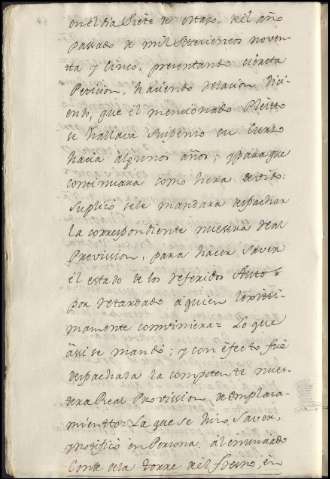 en el dia siete de octubre del año
pasado de mil Setecientos noven
ta y cinco, presentando cierta
Peticion, haciendo relacion dici
endo, que el mencionado Pleito
se hallava Suspenso en Curso
hacia algunos años; y para que
continuara como hera devido:
Suplicó se le mandara despachar
la correspondiente nuestra Real
Provision, para hacer Saver
el estado de los referidos Autos
por retardado a quien lexiti-
mamente conviniera: Lo que
asi se mandó; y con efecto fué
despachada la competente nues
tra Real Provision de emplaza
miento: La que se hizo Saver,
y notificó en Persona, al enunciado
Conde de la Torre del Fresno, en